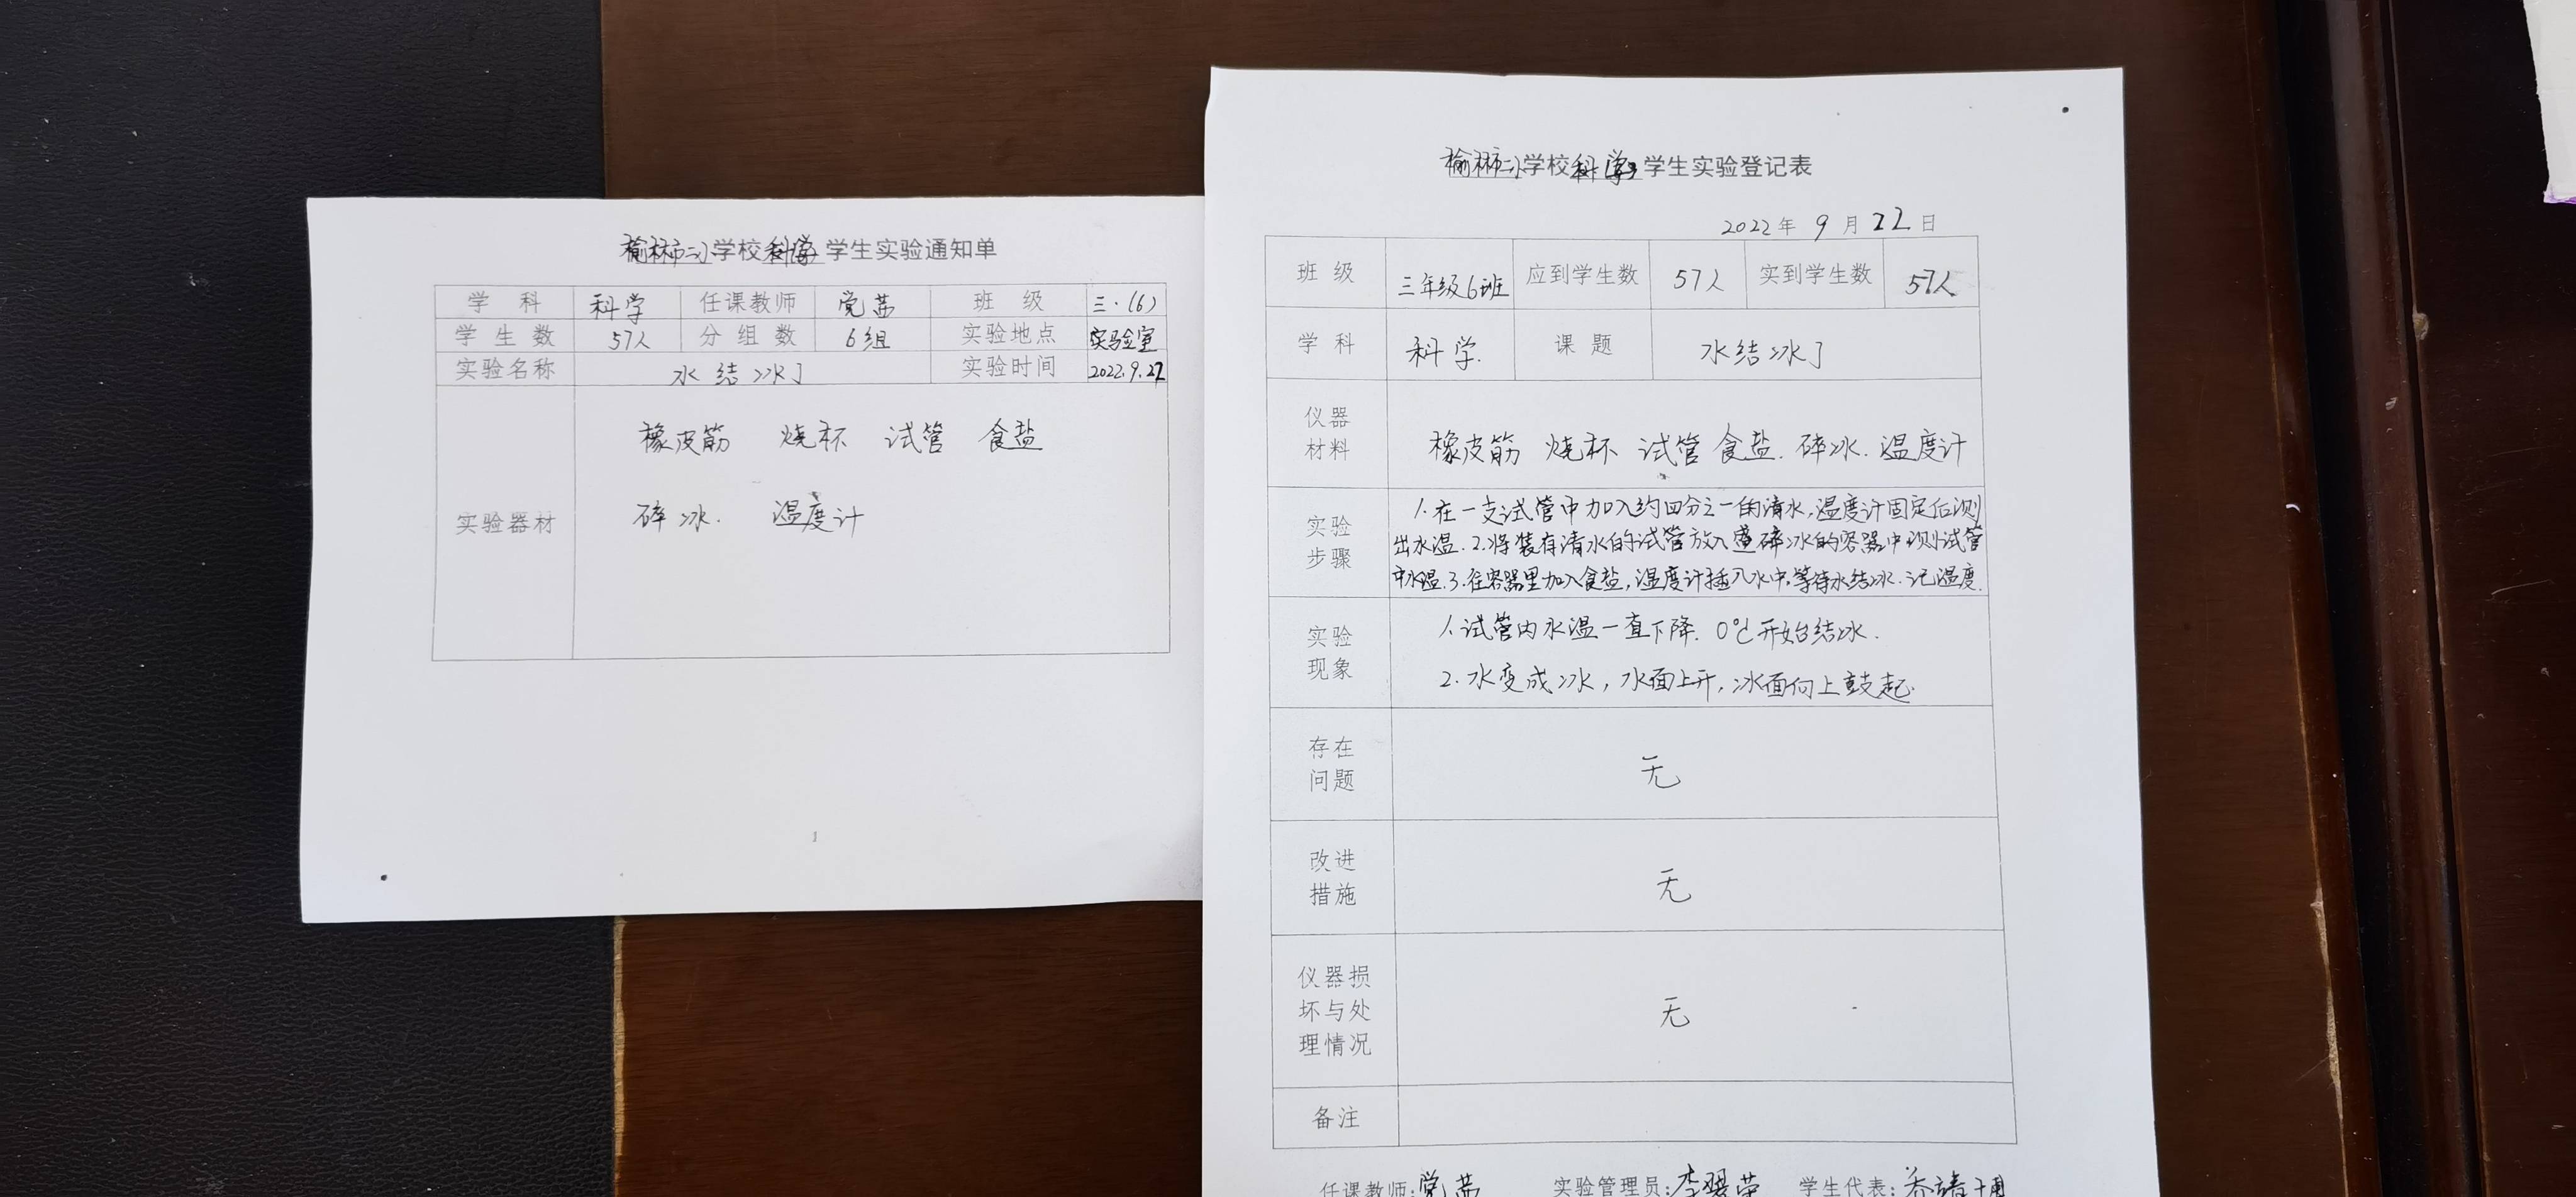 榆林市二小学校科学学生实验通知单
学科 科学 任课教师 党茜 班级 三·(6)
学生数 57人 分组数 6组 实验地点 实验室
实验名称 水结冰了 实验时间 2022.9.22
实验器材 橡皮筋 烧杯 试管 食盐
碎冰. 温度计
榆林市二小学校科学学生实验登记表
2022年 9月 22日
班级 三年级6班 应到学生数 57人 实到学生数 57人
学科 科学. 课题 水结冰了
仪器材料 橡皮筋 烧杯 试管 食盐. 碎冰. 温度计
实验步骤 1.在一支试管中加入约四分之一的清水,温度计固定后测
出水温.2.将装有清水的试管放入盛碎冰的容器中测试管
中水温.3.在容器里加入食盐,温度计插入水中,等待水结冰.记温度.
实验现象 1.试管内水温一直下降. 0℃开始结冰.
2.水变成冰,水面上升,冰面向上鼓起.
存在问题 无
改进措施 无
仪器损坏与处理情况 无
备注
任课教师:党茜 实验管理员: 学生代表: